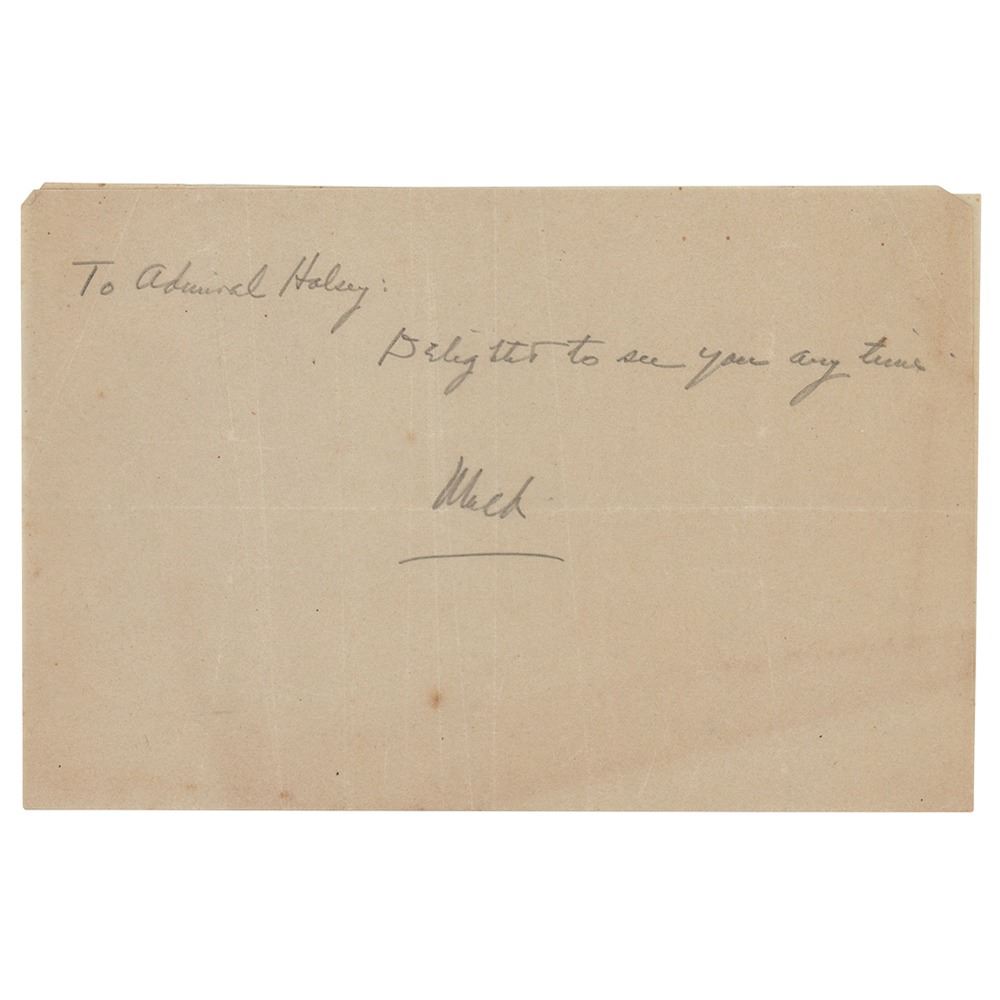 To Admiral Halsey:
Delighted to see you any time.
MacA